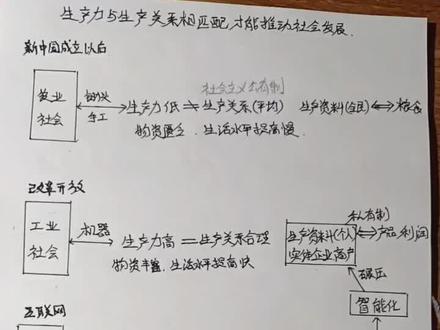 生产力与生产关系相匹配才能推动社会发展.
新中国成立以后
社会主义公有制
农业
社会
锄头
手工
生产力低 = 生产关系(平均) 生产资料(全民) 粮食
物资匮乏. 生活水平提高慢.
改革开放
私有制
工业
社会
机器
生产力高 = 生产关系合理
生产资料(个人)
实体企业高产
产品利润
物资丰富. 生活水平提高快
碾压
智能化
互联网